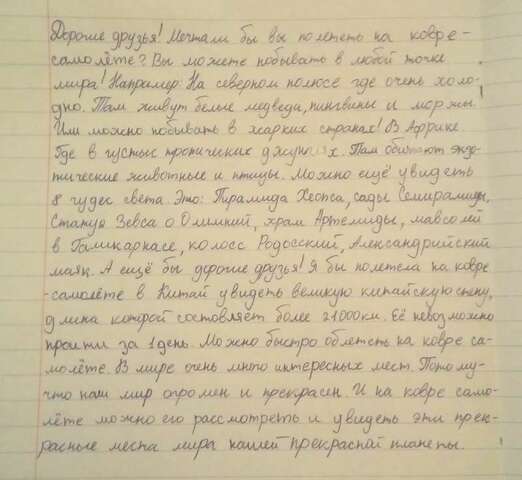 Дорогие друзья! Мечтали бы вы полететь на ковре-
самолёте? Вы можете побывать в любой точке
мира! Например: На северном полюсе где очень холо-
дно. Там живут белые медведи, пингвины и моржи.
Или можно побывать в жарких странах! В Африке.
Где в густых тропических джунглях. Там обитают экзо-
тические животные и птицы. Можно ещё увидеть
8 чудес света. Это: Пирамида Хеопса, сады Семирамиды,
Статуя Зевса о Олимпий, храм Артемиды, мавсолей
в Галикарнасе, колосс Родосский, Александрийский
маяк. А ещё бы дорогие друзья! Я бы полетела на ковре
-самолёте в Китай увидеть великую китайскую стену,
длина которой составляет более 21000км. Её невозможно
пройти за 1 день. Можно быстро облететь на ковре са-
молёте. В мире очень много интересных мест. Потому-
что наш мир огромен и прекрасен. И на ковре само-
лёте можно его рассмотреть и увидеть эти прек-
расные места мира нашей прекрасной планеты.